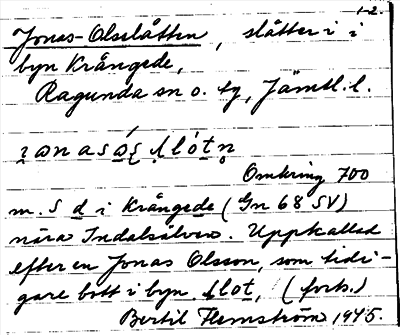 1-2.
Jonas-Olsslåtten, slåtter i i
byn Krångede,
Ragunda sn o. tg, Jämtl. l.
Omkring 700
m. S d i Krångede (Gn 68 SV)
nära Indalsälven. Uppkallad
efter en Jonas Olsson, som tidi-
gare bott i byn. (forts.)
Bertil Flemström 1945.